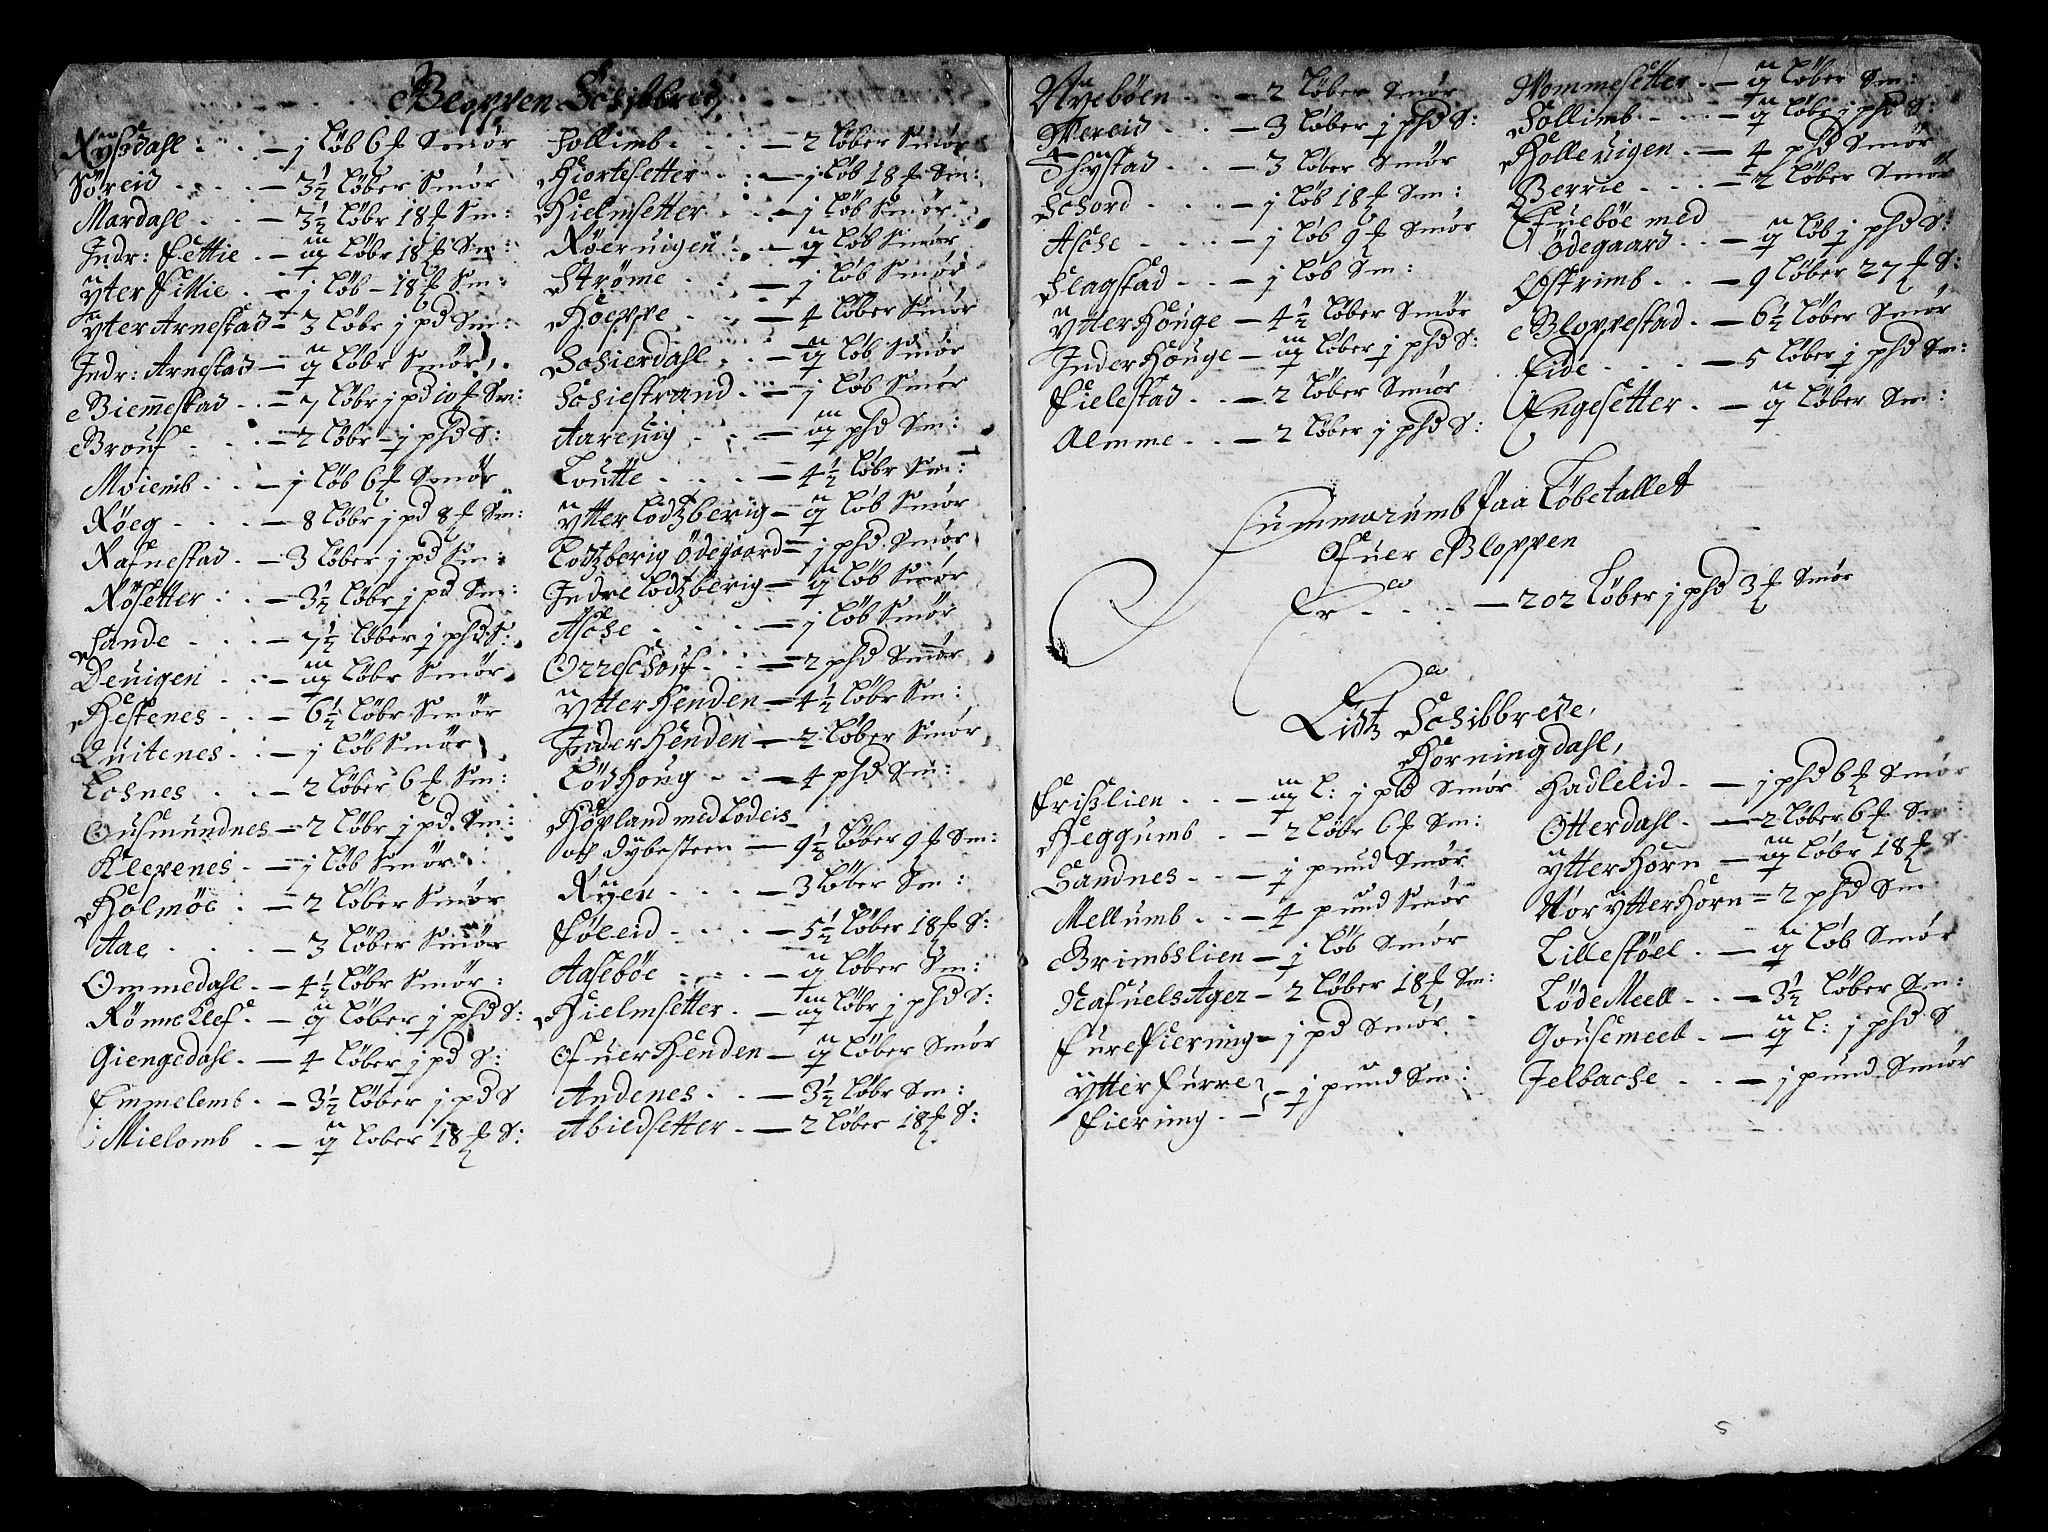 Gloppen Schibbrede
Rysdahl - j Løb 6 ℔ Smør
Søreid - 3½ Løber Smør
Mardahl - 3½ Løbr 18 ℔ Sm:
Indr: Fettie - Løbr 18 ℔ Sm
Ytter Fittie - j Løb - 18 ℔ Sm:
Ytter Arnestad - 3 Løbr j pd Sm:
Indr: Arnestad - Løbr Smør
Giem̄estad - 7 Løbr j pd 10 ℔ Sm:
Grouf - 2 Løbr - j phd S:
Moiemb - j Løb 6 ℔ Smør
Røeg - 8 Løbr j pd 8 ℔ Sm:
Rafnestad - 3 Løber j pd Sm:
Røsetter - 3½ Løbr j pd Sm:
Sande - 7½ Løber j phd S:
Deuigen - Løbr Smør
Hestenes - 6½ Løbr Smør
Quitenes - j Løb Smør
Losnes - 2 Løber 6 ℔ Sm:
Ousmundnes - 2 Løbr j pd Sm:
Kleppenes - j Løb Smør
Holmøe - 2 Løber Smør
Aae - 3 Løber Smør
Ommedahl - 4½ Løbr Smør:
Rønneklef - Løber j phd S:
Giengedahl - 4 Løber j pd S:
Emmelemb - 3½ Løber j pd S
Mielomb - Løber 18 ℔ S:
Sollimb - 2 Løber Smør
Hiortesetter - j Løb 18 ℔ Sm:
Hielmsetter - j Løb Smør
Røeruigen - Løb Smør
Strøme - j Løb Smør
Hoeppe - 4 Løber Smør
Schierdahl - Løb Smør
Schiestrand - j Løb Smør
Aareuig - phd Sm:
Loutte - 4½ Løbr Sm:
Ytter Lodzberig - Løb Smør
Lodzberig Ødegaard - j phd Smør
Indre Lodzberig - Løb Smør
Asche - j Løb Smør
Orreschouf - 2 phd Smør
Ytter Henden - 4½ Løbr Sm:
Inder Henden - 2 Løber Smør
Lødhoug - 4 phd Sm:
Hopland med Lodeis
off Dybesteen - 9½ Løber 9 ℔ Sm:
Ryen - 3 Løber Sm:
Føleid - 5½ Løber 18 ℔ S:
Aasebøe - Løber Sm:
Hielmsetter - Løbr j phd S:
Ofuer Henden - Løber Smør
Andenes - 3½ Løbr Sm:
Abiedsetter - 2 Løber 18 ℔ S:
Nyebøen - 2 Løber Smør
Wereid - 3 Løber j phd S:
Thystad - 3 Løber Smør
Schord - j Løb 18 ℔ Sm:
Asche - j Løb 9 ℔ Smør
Slagstad - j Løb Sm:
Ytter Houge - 4½ Løber Smør
Inder Houge - Løber j phd S:
Fielestad - 2 Løber Smør
Almme - 2 Løber j phd S:
Wommesetter - Løber Sm:
Sollimb - Løbr j phd S:
Holleuigen - 4 phd Smør
Berrie - 2 Løber Smør
Efuebøe med
Ødegaard - Løb j phd S:
Østrimb - 9 Løber 27 ℔ S:
Gloppestad - 6½ Løber Smør
Eide - 5 Løber j phd Sm:
Engesetter - Løber Sm:
Summarumb Paa Løbetallet
Ofuer Gloppen
Er - 202 Løber j phd 3 ℔ Smør
Eidz Schibbrede,
Horningdahl,
Frislien - L: j pd Smør
Heggumb - 2 Løbr 6 ℔ Sm:
Sandnes - j pund Smør
Mellumb - 4 pund Smør
Grimbslien - j Løb Smør
Nafuels Ager - 2 Løber 18 ℔ Sm:
Fure Fiering - j pd Smør
Ytter Furre
Fiering - j pund Sm:
Hadlelid - j phd 6 ℔ Smør
Otterdahl - 2 Løber 6 ℔ Sm:
Ytter Horn - Løbr 18 ℔ S
Nor Ytter Horn - 2 phd Sm
Lillestøel - Løb Smør
Løde Meell - 3½ Løber Sm:
Gousemeel - L: j phd S
Jelbache - j pund Smør
5